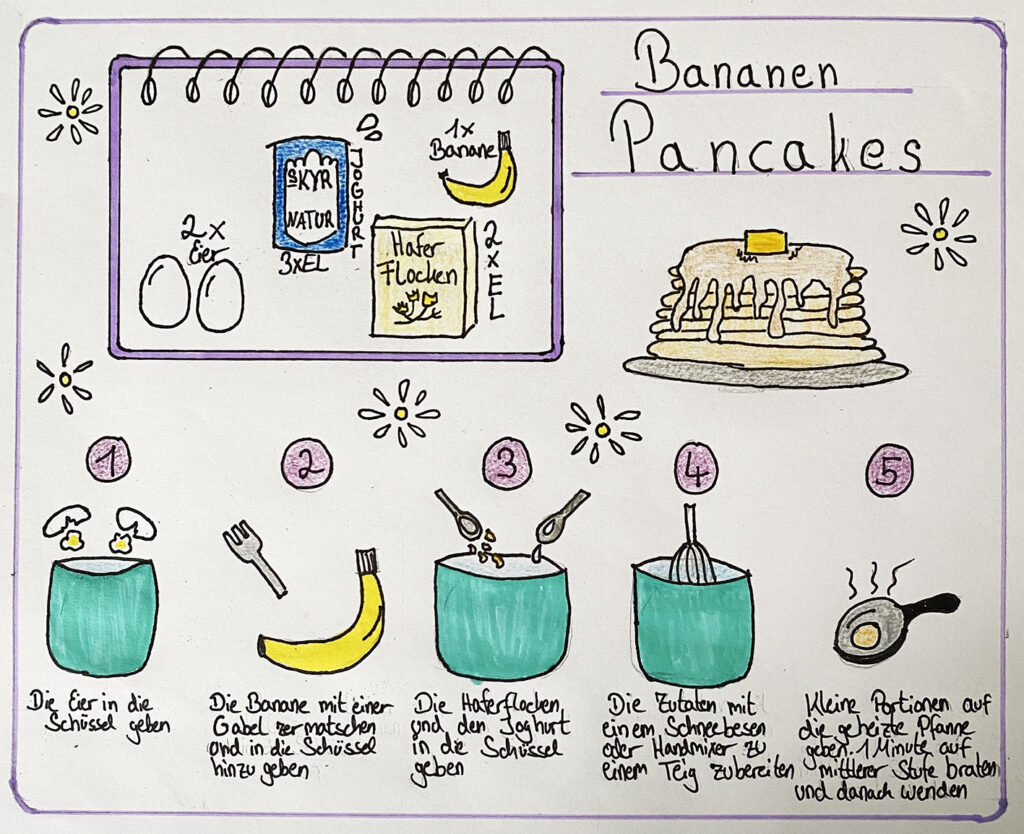 Bananen
Pancakes
2x
Eier
SKYR
NATUR
JOGHURT
3xEL
1x
Banane
Hafer
Flocken
2xEL
1
Die Eier in die
Schüssel geben
2
Die Banane mit einer
Gabel zermatschen
und in die Schüssel
hinzu geben
3
Die Haferflocken
und den Joghurt
in die Schüssel
geben
4
Die Zutaten mit
einem Schneebesen
oder Handmixer zu
einem Teig zubereiten
5
Kleine Portionen auf
die geheizte Pfanne
geben. 1 Minute auf
mittlerer Stufe braten
und danach wenden